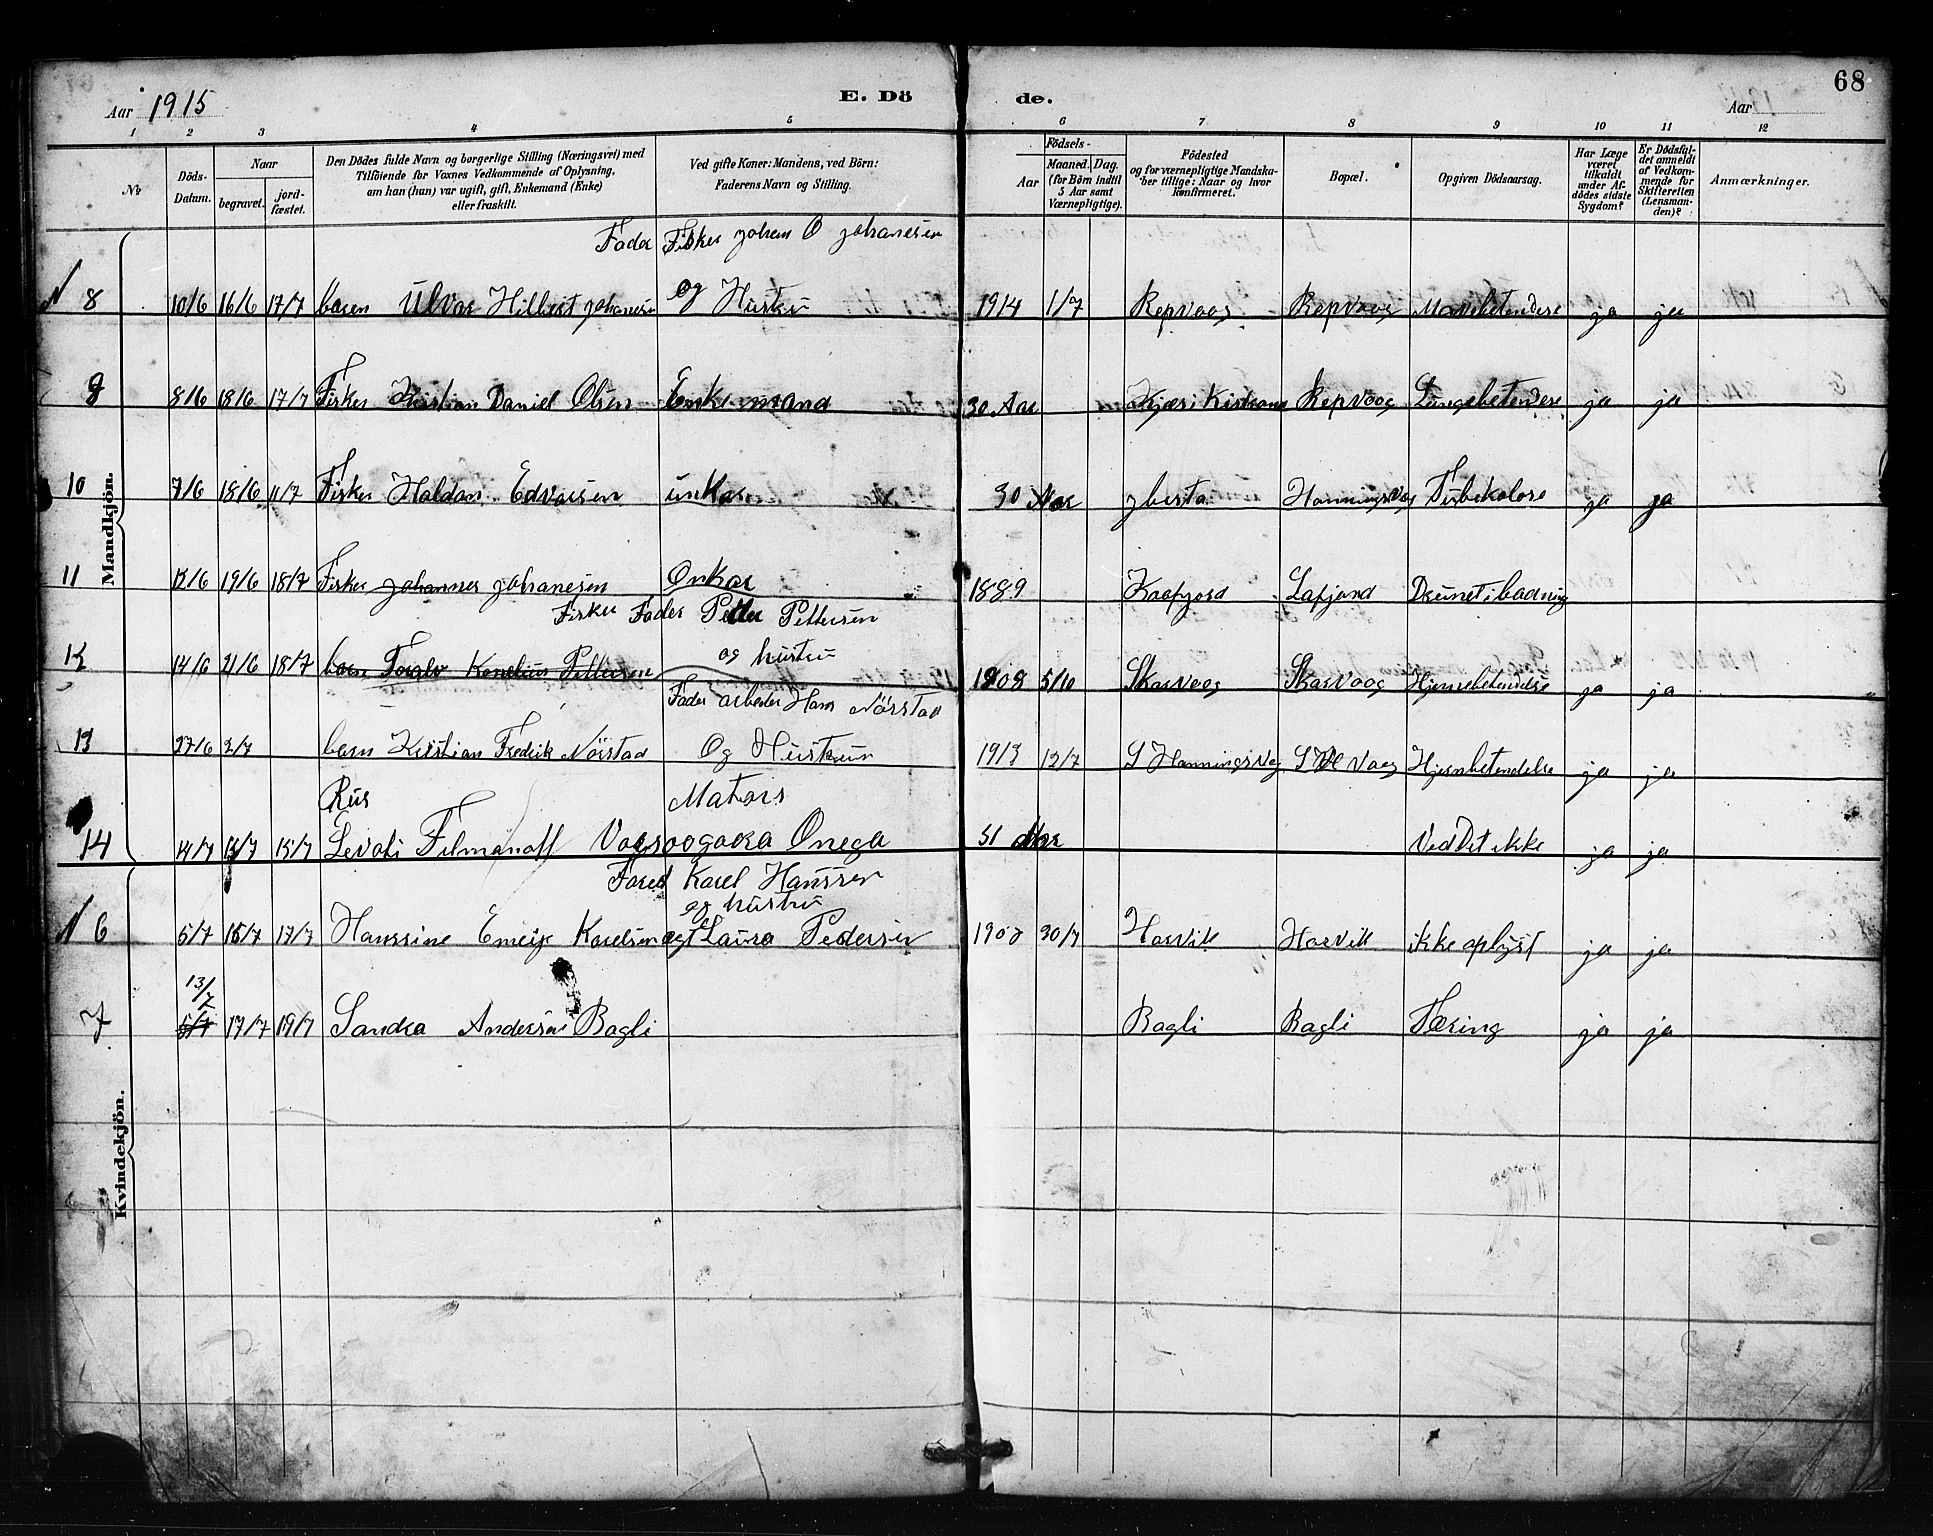 68
Aar 1915 E. Dö de. Aar
1 2 3 4 5 6 7 8 9 10 11 12
No Döds-Datum. Naar begravet. jord-fæstet. Den Dödes fulde Navn og borgerlige Stilling (Næringsvei) med Tilföiende for Voxnes Vedkommende af Oplysning, om han (hun) var ugift, gift, Enkemand (Enke) eller fraskilt. Ved gifte Koner: Mandens, ved Börn: Faderens Navn og Stilling. Födsels- Aar Maaned. Dag. (for Börn indtil 5 Aar samt Værnepligtige). Födested og for værnepligtige Mandska-ber tillige: Naar og hvor konfirmeret. Bopæl. Opgiven Dödsaarsag. Har Læge været tilkaldt under Af-dödes sidste Sygdom? Er Dödsfal-det anmeldt af Vedkom-mende for Skifteretten (Lensman-den)? Anmærkninger.
Mandkjön.
Fader Fisker Johan O Johanesen
N 8 10/6 16/6 17/7 barn Hilbert Johanesen og Hustru 1914 1/7 Repvaag Repvaag Mavebetendese ja ja
9 8/6 18/6 17/7 Fisker Kristian Daniel Olsen Enkemand 30 Aar Repvaag Lungebetendese ja ja
10 7/6 18/6 11/7 Fisker Haldan Edvarsen unkar 30 Aar Honningsvag Tuberkolose ja ja
11 12/6 19/6 18/7 Fisker Johannes Johanesen Onkar 1889 Kaafjord Lafjord
Fisker Fader Petter Pettersen
12 14/6 21/6 18/7 barn Konelius Pettersen og hustru 1908 5/10 Skarvaag Skarvaag Hjernebetendelse ja ja
Fader arbeder Hans Nörstad
13 27/6 2/7 barn Kristian Fredrik Nörstad Og Hustrun 1913 12/7 S Honningsvag Hjernbetendelse ja ja
Rus Mators
14 14/7 15/7 Levoti Filmanoff Onega 51 Aar Ved Det ikke ja ja
Kvindekjön.
Karel Hanssen
og hustru
N 6 5/7 15/7 17/7 Hanssine Karelsen Laura Pedersen 30/7 Horvik Horvik ikke oplyst ja ja
13/7
7 5/7 17/7 19/7 Sandra Andersen Bagli Bagli Bagli Tæring ja ja